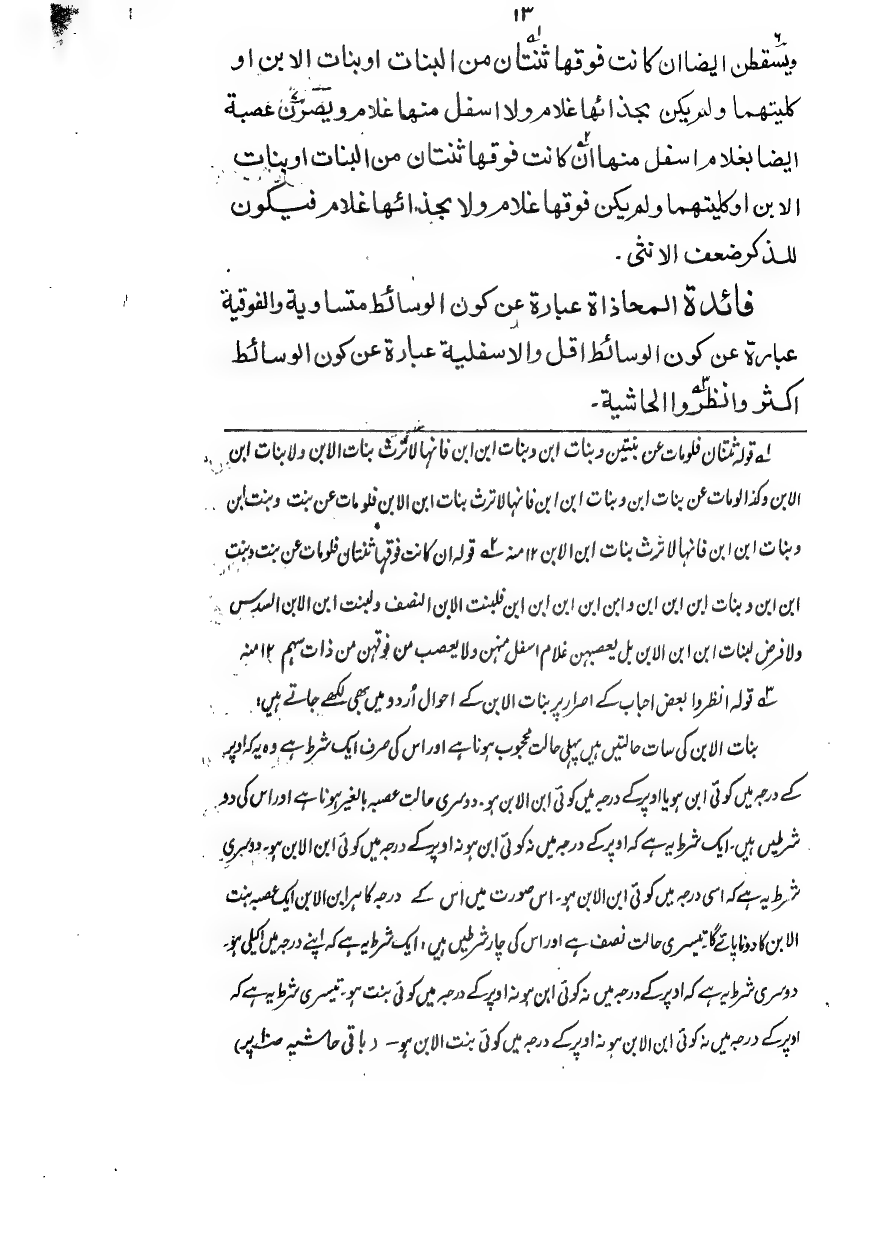 ۱۳
ويسقطن ايضا ان كانت فوقها ثنتان من البنات او بنات الابن او
كليتهما ولم يكن بحذائها غلام ولا اسفل منها غلام ويصرن عصبة
ايضا بغلام اسفل منها ان كانت فوقها ثنتان من البنات او بنات
الابن او كليتهما ولم يكن فوقها غلام ولا بحذائها غلام فيكون
للذكر ضعف الانثى ۔
فائدة المحاذاة عبارة عن كون الوسائط متساوية والفوقية
عبارة عن كون الوسائط اقل والاسفلية عبارة عن كون الوسائط
اكثر وانظروا الحاشية ۔
۱؎ قوله ثنتان فلو مات عن بنتين وبنات ابن وبنات ابن ابن فانها لا ترث بنات الابن ولا بنات ابن
الابن وكذا لو مات عن بنات ابن وبنات ابن ابن فانها لا ترث بنات ابن الابن فلو مات عن بنت وبنت ابن
وبنات ابن ابن فانها لا ترث بنات ابن الابن ۱۲ منه ۲؎ قوله ان كانت فوقها ثنتان فلو مات عن بنت وبنت
ابن ابن وبنات ابن ابن ابن وابن ابن ابن ابن ابن فلبنت الابن النصف ولبنت ابن الابن السدس
ولا فرض لبنات ابن ابن الابن بل يعصبهن غلام اسفل منهن ولا يعصب من فوقهن من ذات سهم ۱۲ منه
۳؎ قوله انظروا بعض احباب کے اصرار پر بنات الابن کے احوال اُردو میں بھی لکھے جاتے ہیں:
بنات الابن کی سات حالتیں ہیں پہلی حالت محجوب ہونا ہے اور اس کی صرف ایک شرط ہے وہ یہ کہ اوپر
کے درجہ میں کوئی ابن ہو یا اوپر کے درجہ میں کوئی ابن الابن ہو۔ دوسری حالت عصبہ بالغیر ہونا ہے اور اس کی دو
شرطیں ہیں۔ ایک شرط یہ ہے کہ اوپر کے درجہ میں نہ کوئی ابن ہو نہ اوپر کے درجہ میں کوئی ابن الابن ہو۔ دوسری
شرط یہ ہے کہ اسی درجہ میں کوئی ابن الابن ہو۔ اس صورت میں اس کے درجہ کا ہر ابن الابن ایک عصبہ بنت
الابن کا دونا پائے گا تیسری حالت نصف ہے اور اس کی چار شرطیں ہیں: ایک شرط یہ ہے کہ اپنے درجہ میں اکیلی ہو۔
دوسری شرط یہ ہے کہ اوپر کے درجہ میں نہ کوئی ابن ہو نہ اوپر کے درجہ میں کوئی بنت ہو۔ تیسری شرط یہ ہے کہ
اوپر کے درجہ میں نہ کوئی ابن الابن ہو نہ اوپر کے درجہ میں کوئی بنت الابن ہو۔ (باقی حاشیہ پر)